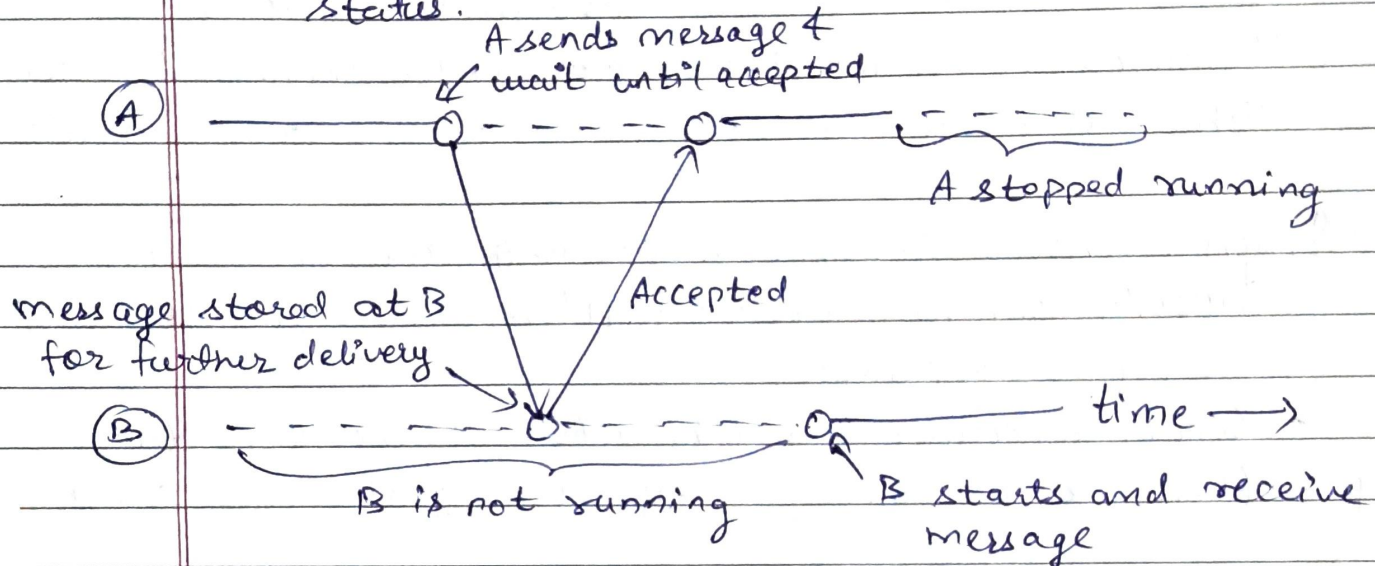 status.
A sends message &
wait until accepted
A
A stopped running
Accepted
message stored at B
for further delivery
B
time
B is not running
B starts and receive
message